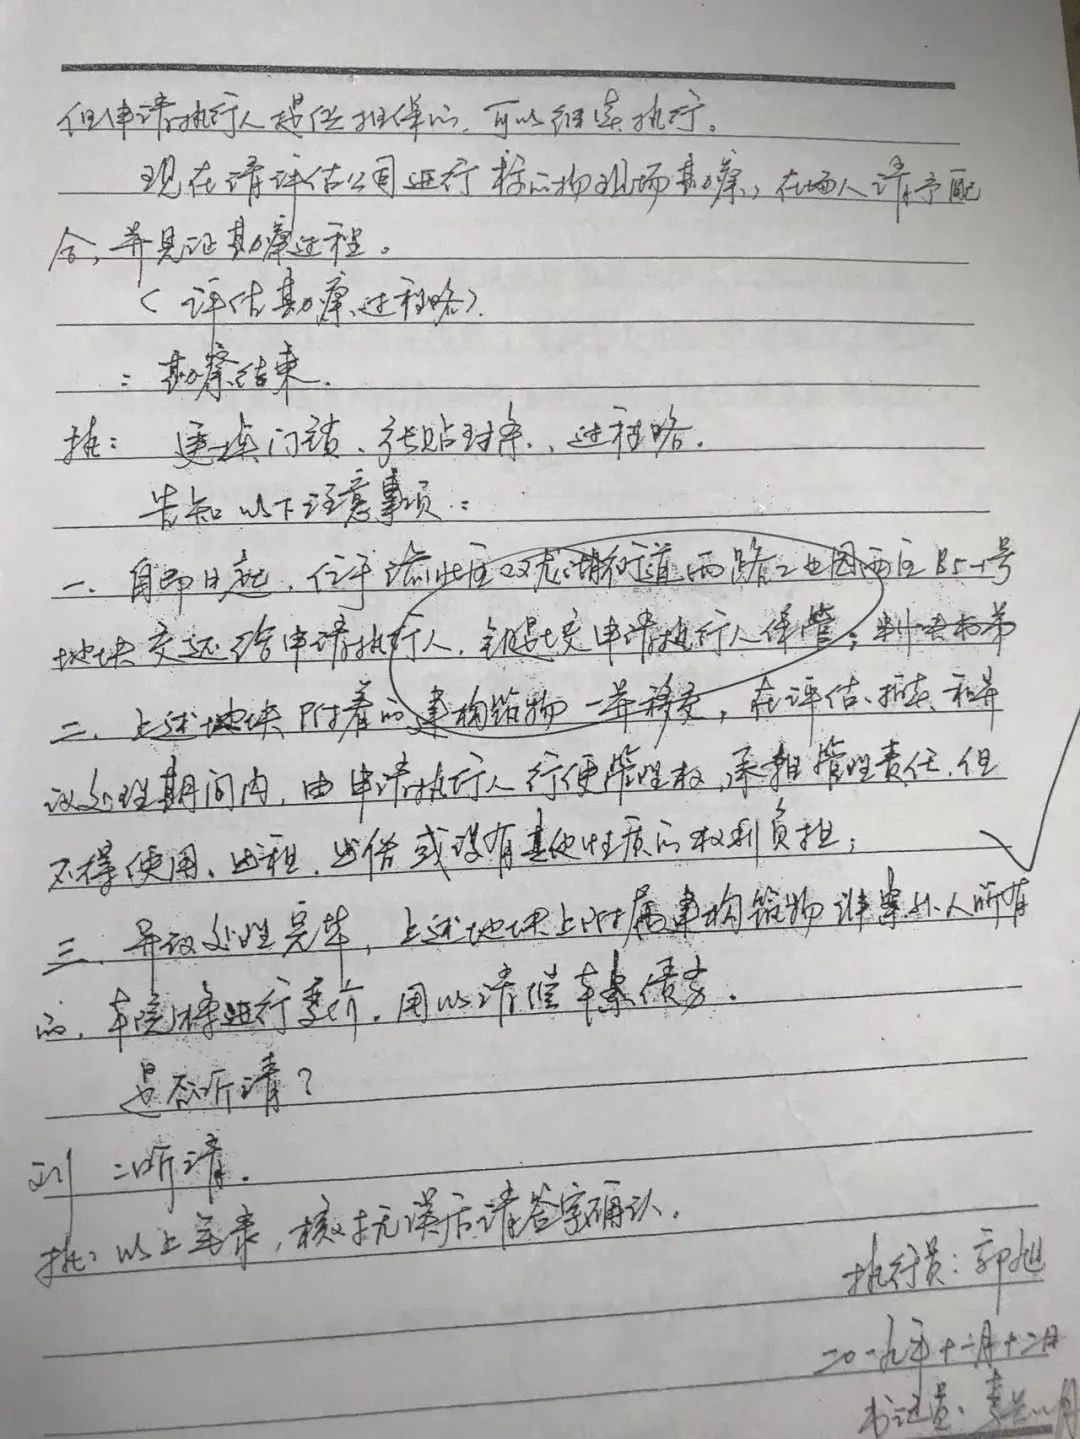 但申请执行人提供担保的，可以继续执行。
现在请评估公司进行标的物现场勘察，在场人请予配
合，并见证勘察过程。
（评估勘察过程略）.
：勘察结束.
执：更换门锁、张贴封条，过程略.
告知以下注意事项：
一、自即日起，位于渝北区双龙湖街道两路工业园西区B5-1号
地块交还给申请执行人，钥匙交申请执行人保管；
二、上述地块附着的建构筑物一并移交，在评估、拍卖和异
议处理期间内，由申请执行人行使管理权，承担管理责任，但
不得使用、出租、出借或设有其他性质的权利负担；
三、异议处理完毕，上述地块上附属建构筑物非案外人所有
的，本院将进行变价，用以清偿本案债务.
是否听清？
刘：听清.
执：以上笔录，核对无误后请签字确认.
执行员：郭旭
二〇一九年十二月十二日
书记员：李